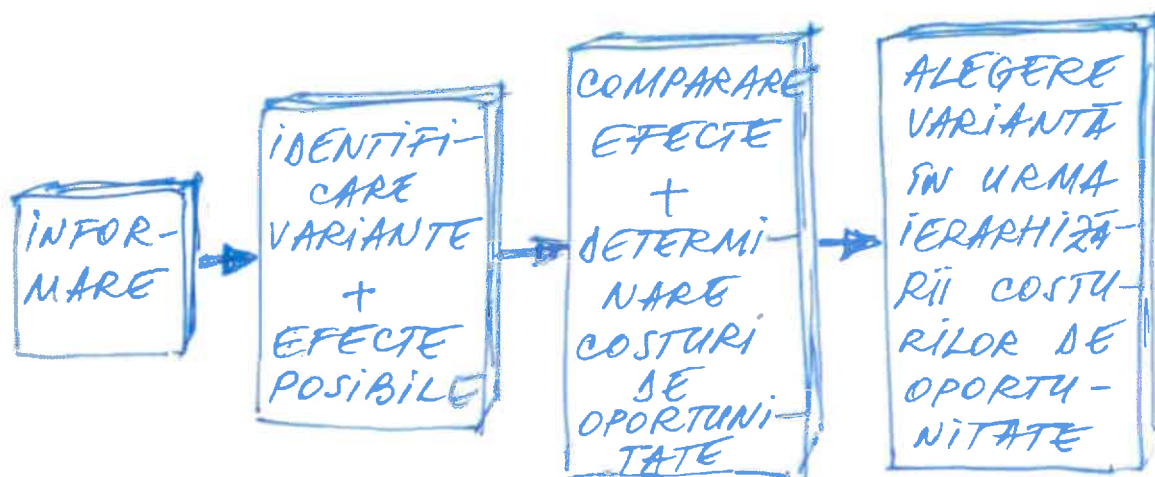 INFOR-
MARE
IDENTIFI-
CARE
VARIANTE
+
EFECTE
POSIBILE
COMPARARE
EFECTE
+
DETERMI-
NARE
COSTURI
DE
OPORTUNI-
TATE
ALEGERE
VARIANTĂ
ÎN URMA
IERARHIZĂ-
RII COSTU-
RILOR DE
OPORTU-
NITATE